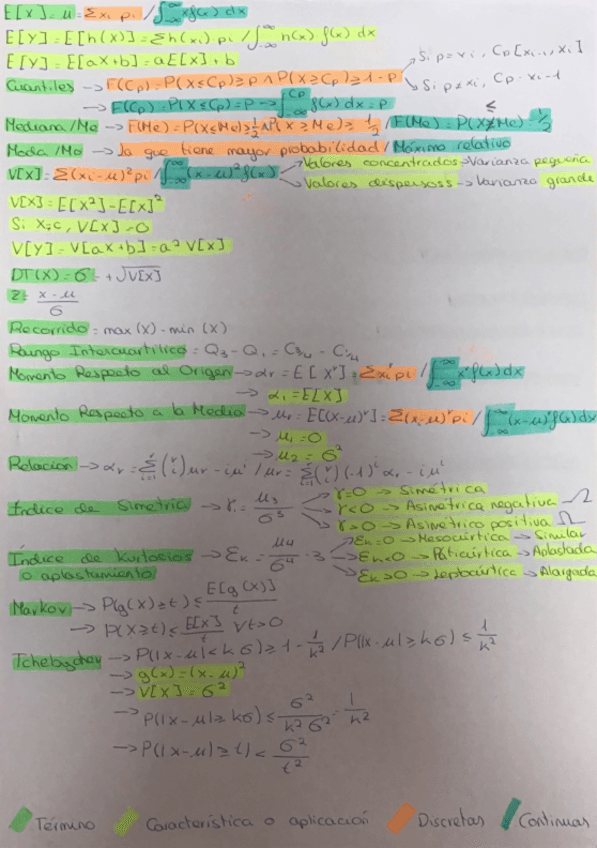 E[X] = μ = Σxi pi / ∫-∞^∞ x f(x) dx
E[Y] = E[h(x)] = Σh(xi) pi / ∫-∞^∞ h(x) f(x) dx
E[Y] = E[aX+b] = aE[X] + b
Cuantiles → F(Cp) = P(X≤Cp) ≥ p ∧ P(X≥Cp) ≥ 1-p
Si p=xi, Cp[xi-1, xi]
Si p≠xi, Cp=xi-1
→ F(Cp) = P(X≤Cp) = p → ∫-∞^Cp f(x) dx = p
Mediana/Me → F(Me) = P(X≤Me) ≥ 1/2 ∧ P(X≥Me) ≥ 1/2 / F(Me) = P(X≤Me) = 1/2
Moda/Mo → La que tiene mayor probabilidad / Máximo relativo
V[X] = Σ(xi-μ)² pi / ∫-∞^∞ (x-μ)² f(x)
Valores concentrados → Varianza pequeña
Valores dispersoss → Varianza grande
V[X] = E[X²] - E[X]²
Si X=c, V[X] = 0
V[Y] = V[aX+b] = a² V[X]
DT(X) = σ = +√V[X]
Z = x-μ / σ
Recorrido = max(X) - min(X)
Rango Intercuartílico = Q3 - Q1 = C3/4 - C1/4
Momento Respecto al Origen → αr = E[X^r] = Σxi^r pi / ∫-∞^∞ x^r f(x) dx
→ α1 = E[X]
Momento Respecto a la Media → μr = E[(X-μ)^r] = Σ(xi-μ)^r pi / ∫-∞^∞ (x-μ)^r f(x) dx
→ μ1 = 0
→ μ2 = σ²
Relación → αr = Σ(r i) μr-i μ^i / μr = Σ(r i)(-1)^i αr-i μ^i
Índice de Simetría → γ = μ3 / σ³
γ=0 → Simétrica
γ<0 → Asimetrica negativa
γ>0 → Asimetrica positiva
Índice de Kurtosios o aplastamiento → Ek = μ4 / σ4 - 3
Ek=0 → Mesocúrtica → Similar
Ek<0 → Paticúrtica → Aplastada
Ek>0 → Leptocúrtica → Alargada
Markov → P(g(X)≥t) ≤ E[g(X)] / t
→ P(X≥t) ≤ E[X] / t ∀t>0
Tchebychev → P(|X-μ|<kσ) ≥ 1 - 1/k² / P(|X-μ|≥kσ) ≤ 1/k²
→ g(x) = (x-μ)²
→ V[X] = σ²
→ P(|X-μ|≥kσ) ≤ σ² / k²σ² = 1/k²
→ P(|X-μ|≥t) < σ² / t²
Término Característica o aplicación Discretas Continuas